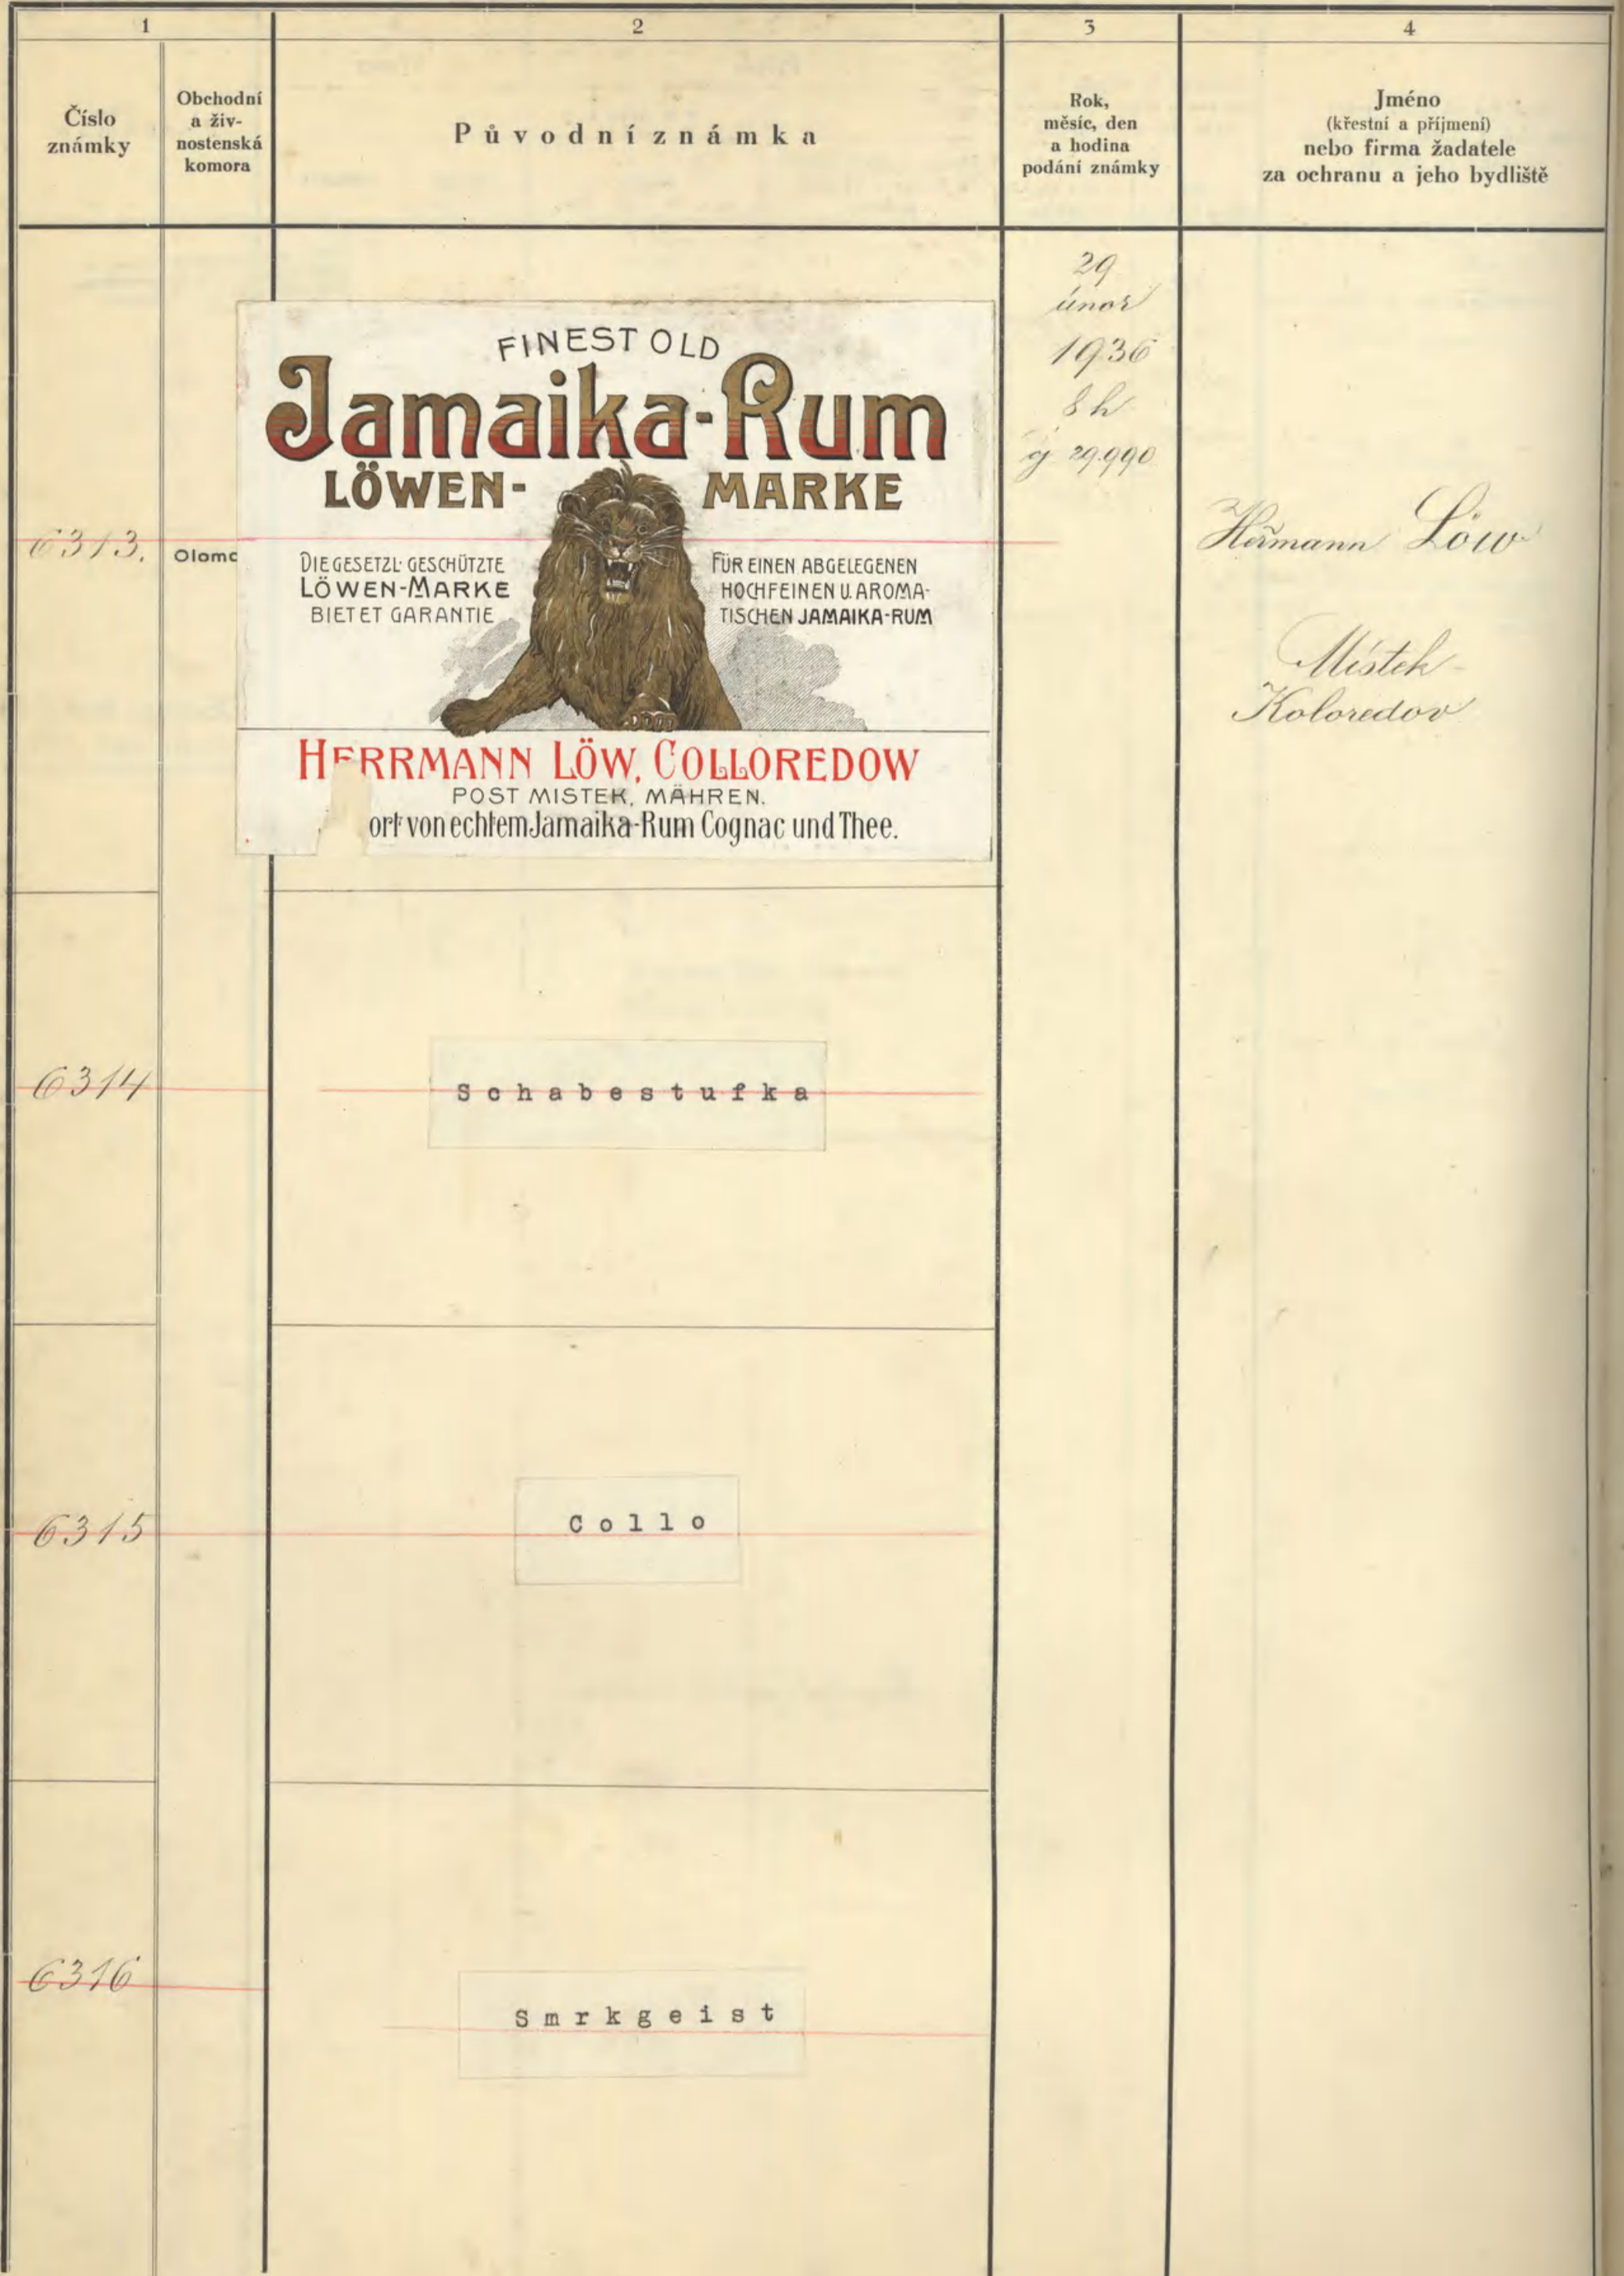 1
2
3
4
Číslo
známky
Obchodní
a živ-
nostenská
komora
Původní známka
Rok,
měsíc, den
a hodina
podání známky
Jméno
(křestní a příjmení)
nebo firma žadatele
za ochranu a jeho bydliště
6313.
Olomo
FINEST OLD
Jamaika-Rum
LÖWEN- MARKE
DIE GESETZL. GESCHÜTZTE
LÖWEN-MARKE
BIETET GARANTIE
FÜR EINEN ABGELEGENEN
HOCHFEINEN U. AROMA-
TISCHEN JAMAIKA-RUM
HERRMANN LÖW, COLLOREDOW
POST MISTEK, MÄHREN.
ort von echtem Jamaika-Rum Cognac und Thee.
29
únor
1936
8 h
29.990
Heřmann Löw
Místek
Koloredov
6314
Schabestufka
6315
Collo
6316
Smrkgeist